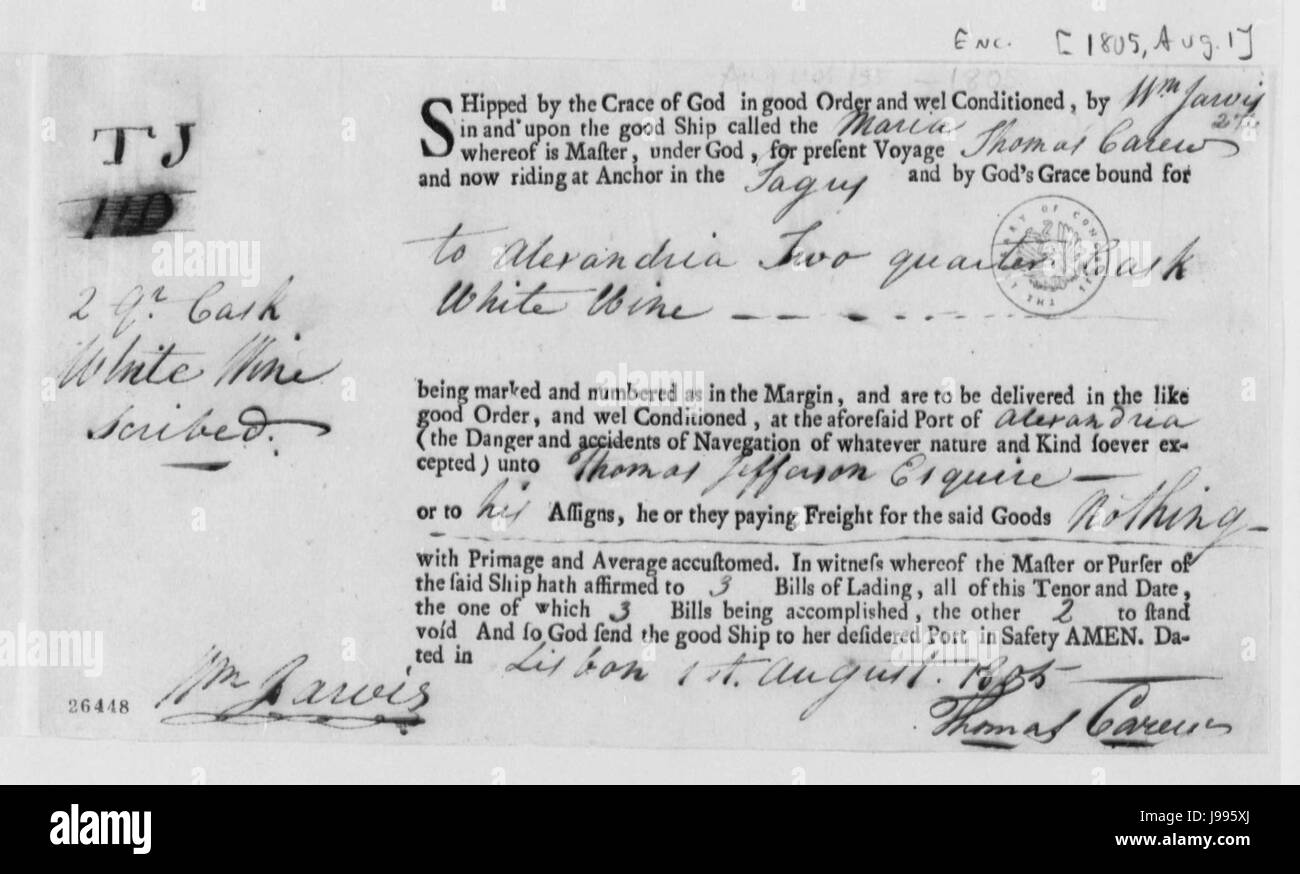 Enc. [1805, Aug. 1]
TJ
2 Qr. Cask
White Wine
scribed.
SHipped by the Crace of God in good Order and wel Conditioned, by Wm Jarvis
in and upon the good Ship called the Maria
whereof is Maſter, under God, for preſent Voyage Thomas Carew
and now riding at Anchor in the Tagus and by God's Grace bound for
to Alexandria Two quarter Cask
White Wine
THE LIBRARY OF CONGRESS
being marked and numbered as in the Margin, and are to be delivered in the like
good Order, and wel Conditioned, at the aforeſaid Port of Alexandria
(the Danger and accidents of Navegation of whatever nature and Kind ſoever ex-
cepted) unto Thomas Jefferson Esquire
or to his Aſſigns, he or they paying Freight for the said Goods Nothing
with Primage and Average accuſtomed. In witneſs whereof the Maſter or Purſer of
the ſaid Ship hath affirmed to 3 Bills of Lading, all of this Tenor and Date,
the one of which 3 Bills being accomplished, the other 2 to ſtand
void And ſo God ſend the good Ship to her deſidered Port in Safety AMEN. Da-
ted in Lisbon 1st. August. 1805
Wm Jarvis
Thomas Carew
26448
alamy
alamy
Image ID: J995XJ
www.alamy.com